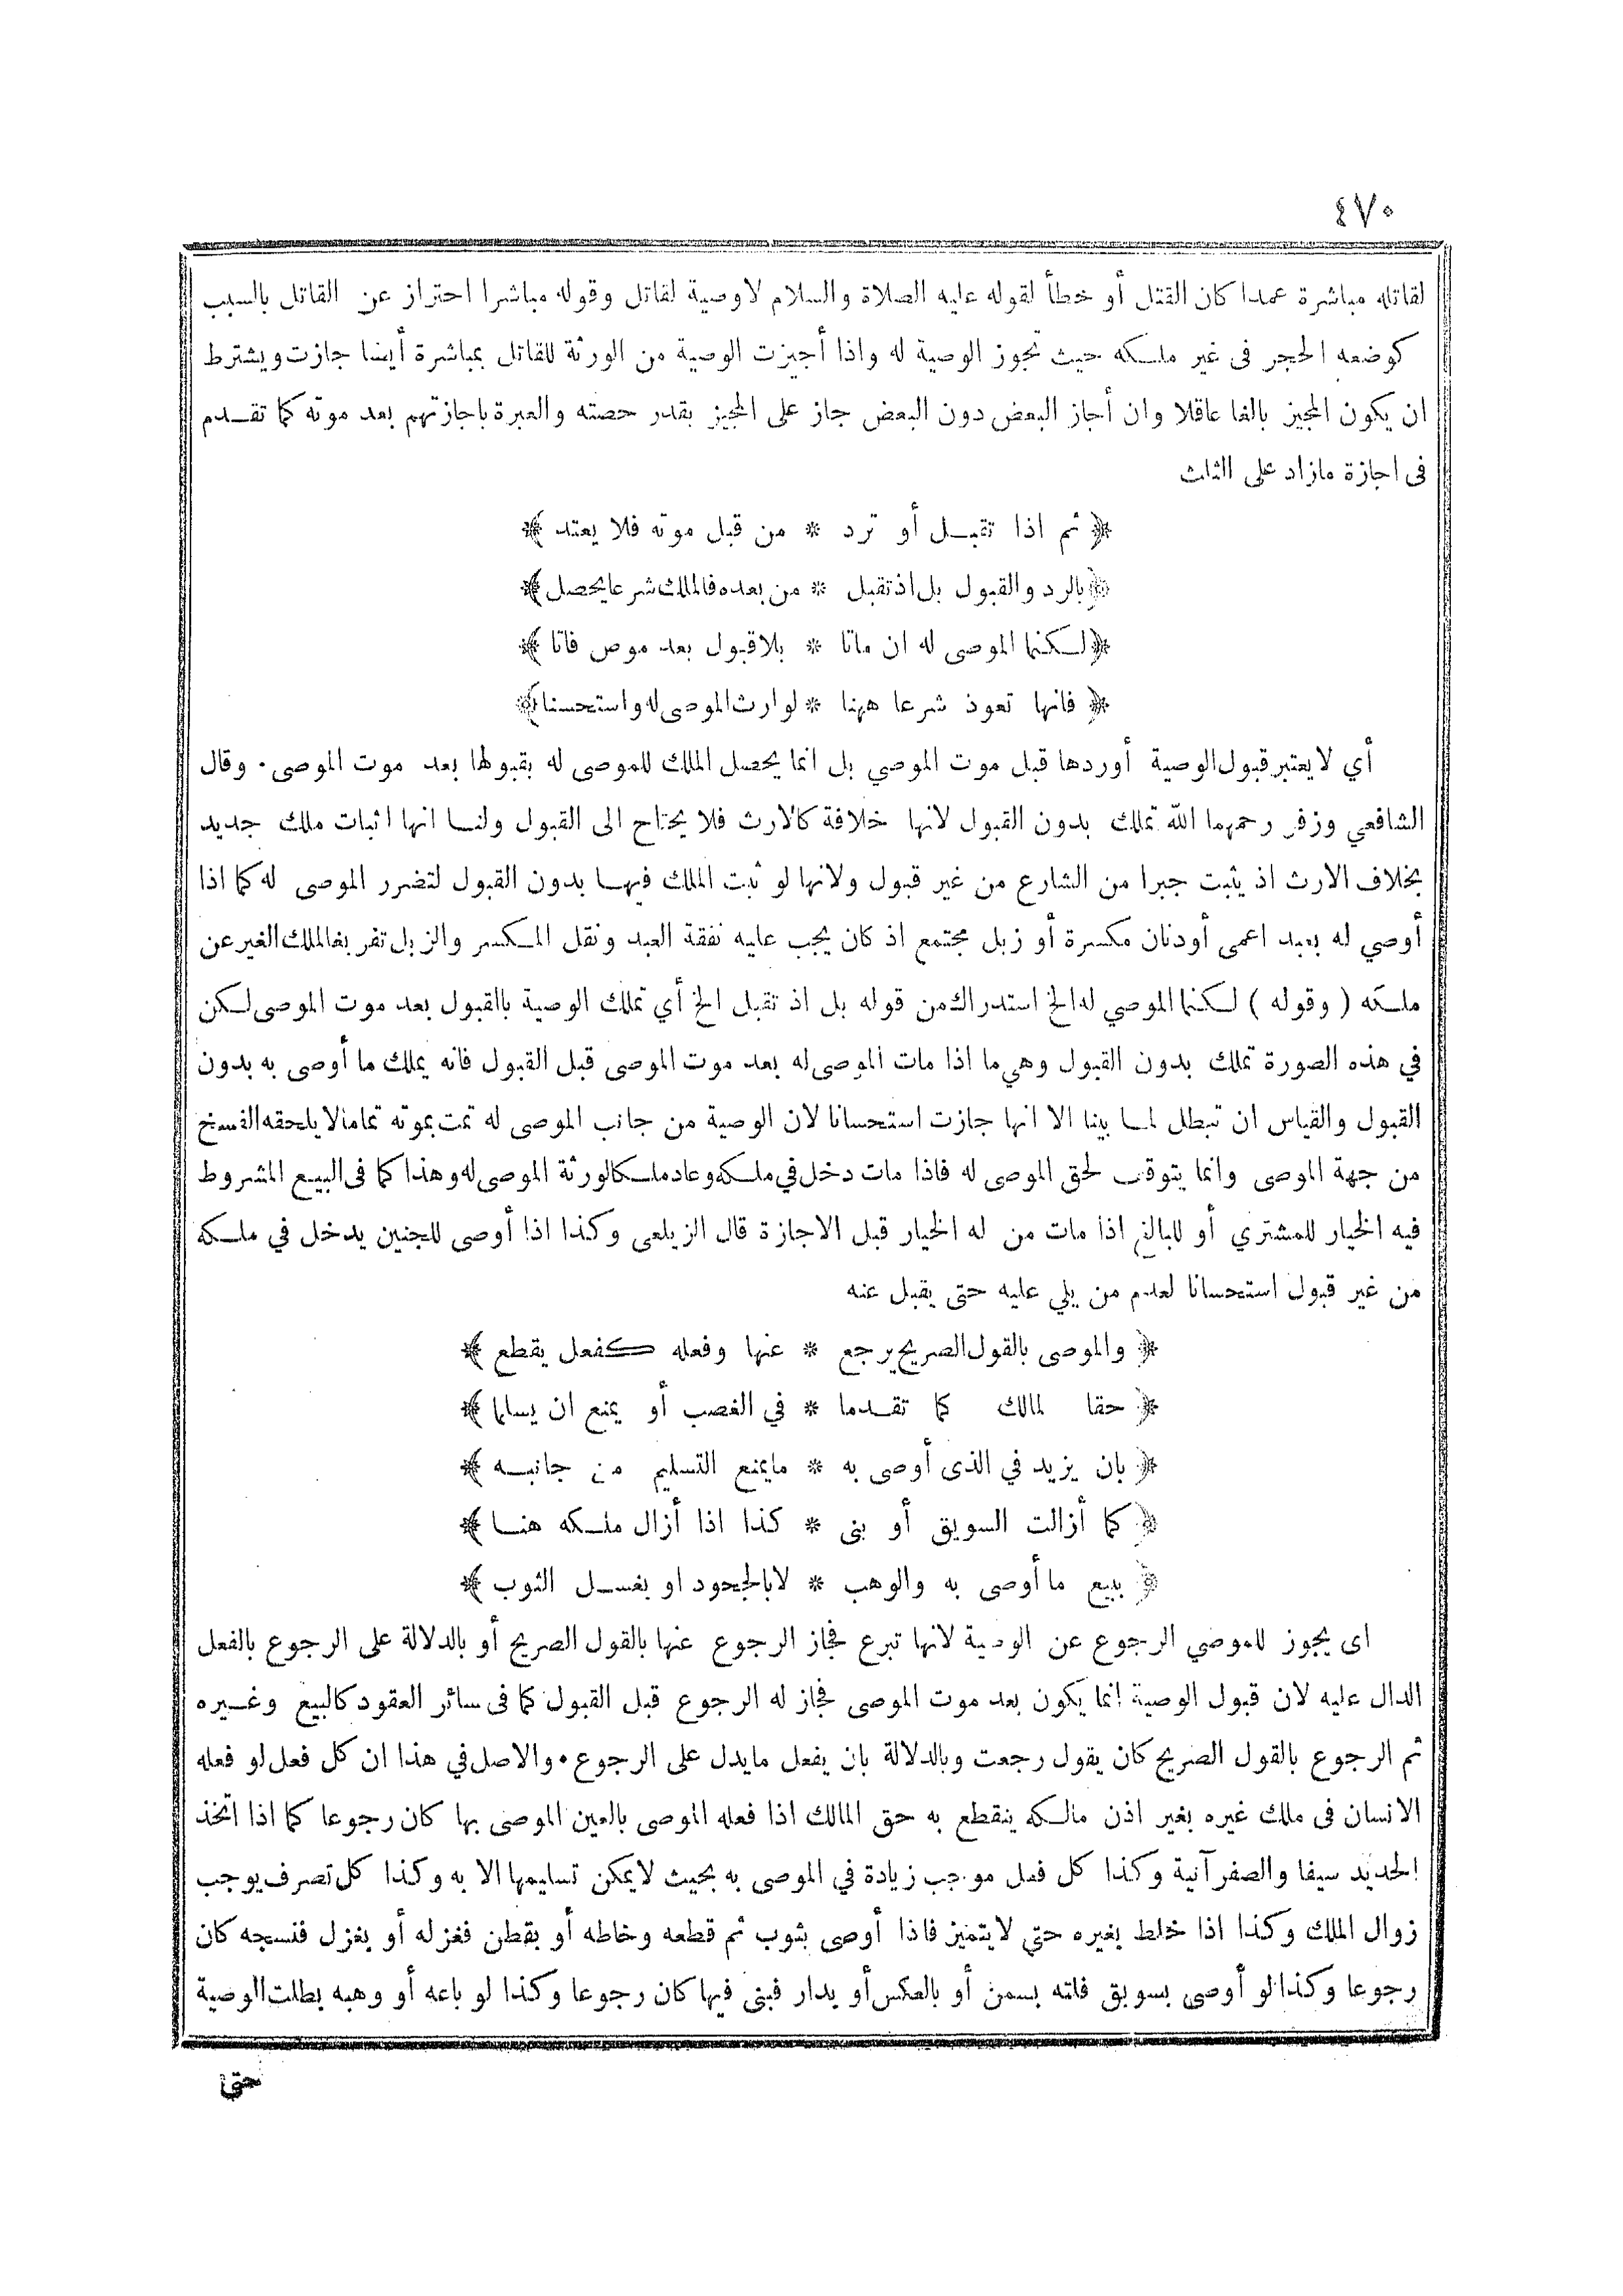 ٤٧٠
لقاتله مباشرة عمدا كان القتل أو خطأ لقوله عليه الصلاة والسلام لاوصية لقاتل وقوله مباشرا احتراز عن القاتل بالسبب
كوضعه الحجر فى غير ملكه حيث تجوز الوصية له واذا أجيزت الوصية من الورثة للقاتل بمباشرة أيضا جازت ويشترط
ان يكون المجيز بالغا عاقلا وان أجاز البعض دون البعض جاز على المجيز بقدر حصته والعبرة باجازتهم بعد موته كما تقدم
فى اجازة مازاد على الثلث
﴿ ثم اذا تقبل أو ترد * من قبل موته فلا يعتد ﴾
﴿ بالرد والقبول بل اذ تقبل * من بعده فالملك شرعا يحصل ﴾
﴿ لكنما الموصى له ان ماتا * بلا قبول بعد موص فاتا ﴾
﴿ فانها تعوذ شرعا ههنا * لوارث الموصى له واستحسنا ﴾
أي لا يعتبر قبول الوصية أوردها قبل موت الموصي بل انما يحصل الملك للموصى له بقبولها بعد موت الموصى . وقال
الشافعي وزفر رحمهما الله تملك بدون القبول لانها خلافة كالارث فلا يحتاج الى القبول ولنا انها اثبات ملك جديد
بخلاف الارث اذ يثبت جبرا من الشارع من غير قبول ولانها لو ثبت الملك فيها بدون القبول لتضرر الموصى له كما اذا
أوصي له بعبد اعمى أودنان مكسرة أو زبل مجتمع اذ كان يجب عليه نفقة العبد ونقل المكسر والزبل تفريغا لملك الغير عن
ملكه ( وقوله ) لكنما الموصي له الخ استدراك من قوله بل اذ تقبل الخ أي تملك الوصية باالقبول بعد موت الموصى لكن
في هذه الصورة تملك بدون القبول وهي ما اذا مات الموصى له بعد موت الموصى قبل القبول فانه يملك ما أوصى به بدون
القبول والقياس ان تبطل لما بينا الا انها جازت استحسانا لان الوصية من جانب الموصى له تمت بموته تماما لا يلحقه الفسخ
من جهة الموصى وانما يتوقف لحق الموصى له فاذا مات دخل في ملكه وعاد ملكا لورثة الموصى له وهذا كما فى البيع المشروط
فيه الخيار للمشتري أو للبائع اذا مات من له الخيار قبل الاجازة قال الزيلعى وكذا اذا أوصى للجنين يدخل في ملكه
من غير قبول استحسانا لعدم من يلي عليه حتى يقبل عنه
﴿ والموصى بالقول الصريح يرجع * عنها وفعله كفعل يقطع ﴾
﴿ حقا لمالك كما تقدما * في الغصب أو يمنع ان يسلما ﴾
﴿ بان يزيد في الذى أوصى به * مايمنع التسليم من جانبه ﴾
﴿ كما أزالت السويق أو بنى * كذا اذا أزال ملكه هنا ﴾
﴿ ببيع ما أوصى به والوهب * لا بالجحود او بغسل الثوب ﴾
اى يجوز للموصي الرجوع عن الوصية لانها تبرع فجاز الرجوع عنها بالقول الصريح أو بالدلالة على الرجوع بالفعل
الدال عليه لان قبول الوصية انما يكون بعد موت الموصى فجاز له الرجوع قبل القبول كما فى سائر العقود كالبيع وغيره
ثم الرجوع بالقول الصريح كان يقول رجعت وبالدلالة بان يفعل مايدل على الرجوع . والاصل في هذا ان كل فعل لو فعله
الانسان فى ملك غيره بغير اذن مالكه ينقطع به حق المالك اذا فعله الموصى بالعين الموصى بها كان رجوعا كما اذا اتخذ
الحديد سيفا والصفر آنية وكذا كل فعل موجب زيادة في الموصى به بحيث لايمكن تسليمها الا به وكذا كل تصرف يوجب
زوال الملك وكذا اذا خلط بغيره حتى لايتميز فاذا أوصى بثوب ثم قطعه وخاطه أو بقطن فغزله أو بغزل فنسجه كان
رجوعا وكذا لو أوصى بسويق فلته بسمن أو بالعكس أو بدار فبنى فيها كان رجوعا وكذا لو باعه أو وهبه بطلت الوصية
حتى